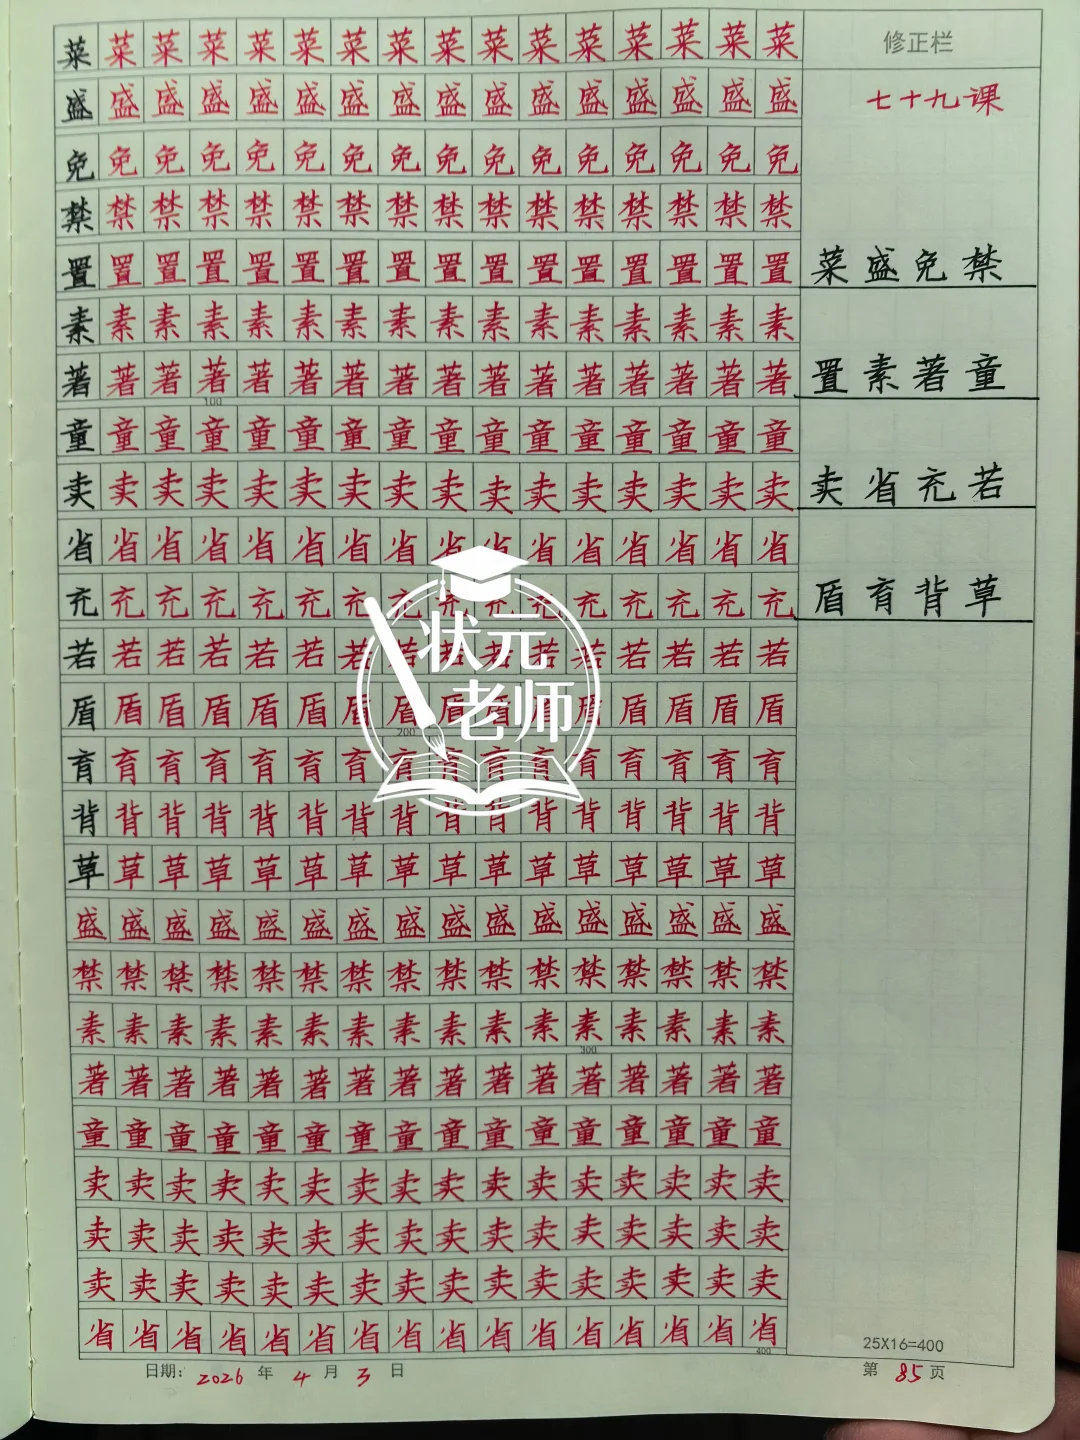 菜菜菜菜菜菜菜菜菜菜菜菜菜菜菜菜
修正栏
盛盛盛盛盛盛盛盛盛盛盛盛盛盛盛盛
七十九课
免免免免免免免免免免免免免免免免
禁禁禁禁禁禁禁禁禁禁禁禁禁禁禁禁
置置置置置置置置置置置置置置置置
菜盛免禁
素素素素素素素素素素素素素素素素
著著著著著著著著著著著著著著著著
置素著童
100
童童童童童童童童童童童童童童童童
卖卖卖卖卖卖卖卖卖卖卖卖卖卖卖卖
卖省充若
省省省省省省省省省省省省省省省省
充充充充充充充充充充充充充充充充
盾育背草
若若若若若若若若若若若若若若若若
状元老师
盾盾盾盾盾盾盾盾盾盾盾盾盾盾盾盾
200
育育育育育育育育育育育育育育育育
背背背背背背背背背背背背背背背背
草草草草草草草草草草草草草草草草
盛盛盛盛盛盛盛盛盛盛盛盛盛盛盛盛
禁禁禁禁禁禁禁禁禁禁禁禁禁禁禁禁
素素素素素素素素素素素素素素素素
300
著著著著著著著著著著著著著著著著
童童童童童童童童童童童童童童童童
卖卖卖卖卖卖卖卖卖卖卖卖卖卖卖卖
卖卖卖卖卖卖卖卖卖卖卖卖卖卖卖卖
卖卖卖卖卖卖卖卖卖卖卖卖卖卖卖卖
省省省省省省省省省省省省省省省省
400
25X16=400
日期: 2026 年 4 月 3 日
第 85 页